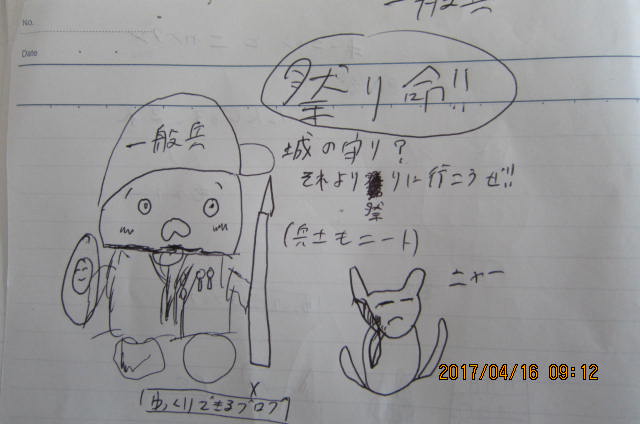 No.
一般兵
Date
祭り命!!
一般兵
城の守り?
それより祭りに行こうぜ!!
(兵士もニート)
ニャー
88
x
ゆっくりできるブログ
2017/04/16 09:12